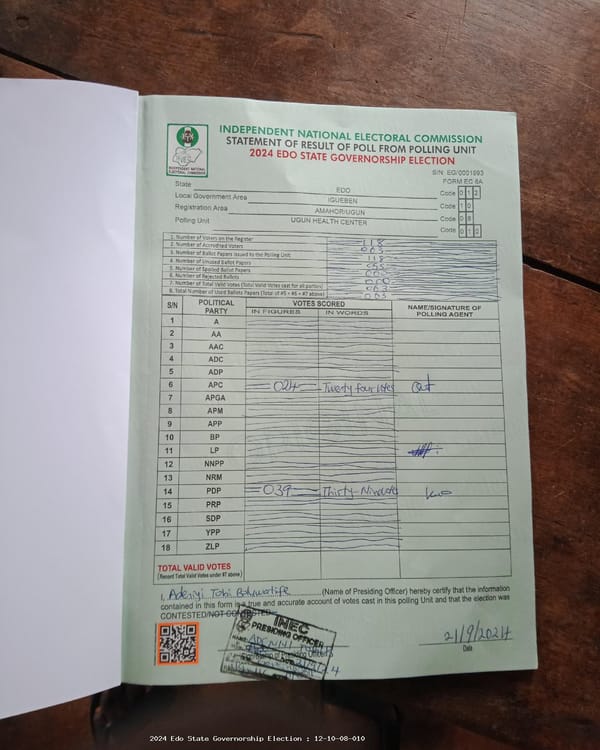 INDEPENDENT NATIONAL ELECTORAL COMMISSION
STATEMENT OF RESULT OF POLL FROM POLLING UNIT
2024 EDO STATE GOVERNORSHIP ELECTION
INEC
INDEPENDENT NATIONAL ELECTORAL COMMISSION
S/N: EG/0001993
FORM EC 8A
State EDO Code 0 1 2
Local Government Area IGUEBEN Code 1 0
Registration Area AMAHOR/UGUN Code 0 8
Polling Unit UGUN HEALTH CENTER Code 0 1 0
1. Number of Voters on the Register 118
2. Number of Accredited Voters 063
3. Number of Ballot Papers Issued to the Polling Unit 118
4. Number of Unused Ballot Papers 055
5. Number of Spoiled Ballot Papers 000
6. Number of Rejected Ballots 000
7. Number of Total Valid Votes (Total Valid Votes cast for all parties) 063
8. Total Number of Used Ballots Papers (Total of #5 + #6 + #7 above) 063
S/N POLITICAL PARTY VOTES SCORED NAME/SIGNATURE OF POLLING AGENT
IN FIGURES IN WORDS
1 A
2 AA
3 AAC
4 ADC
5 ADP
6 APC 024 Twenty four votes
7 APGA
8 APM
9 APP
10 BP
11 LP
12 NNPP
13 NRM
14 PDP 039 Thirty-Nine votes
15 PRP
16 SDP
17 YPP
18 ZLP
TOTAL VALID VOTES
(Record Total Valid Votes under #7 above)
I, Adeniyi Tobi (Name of Presiding Officer) hereby certify that the information
contained in this form is a true and accurate account of votes cast in this polling Unit and that the election was
CONTESTED/NOT CONTESTED
INEC
PRESIDING OFFICER
21/9/2024
Date
2024 Edo State Governorship Election : 12-10-08-010